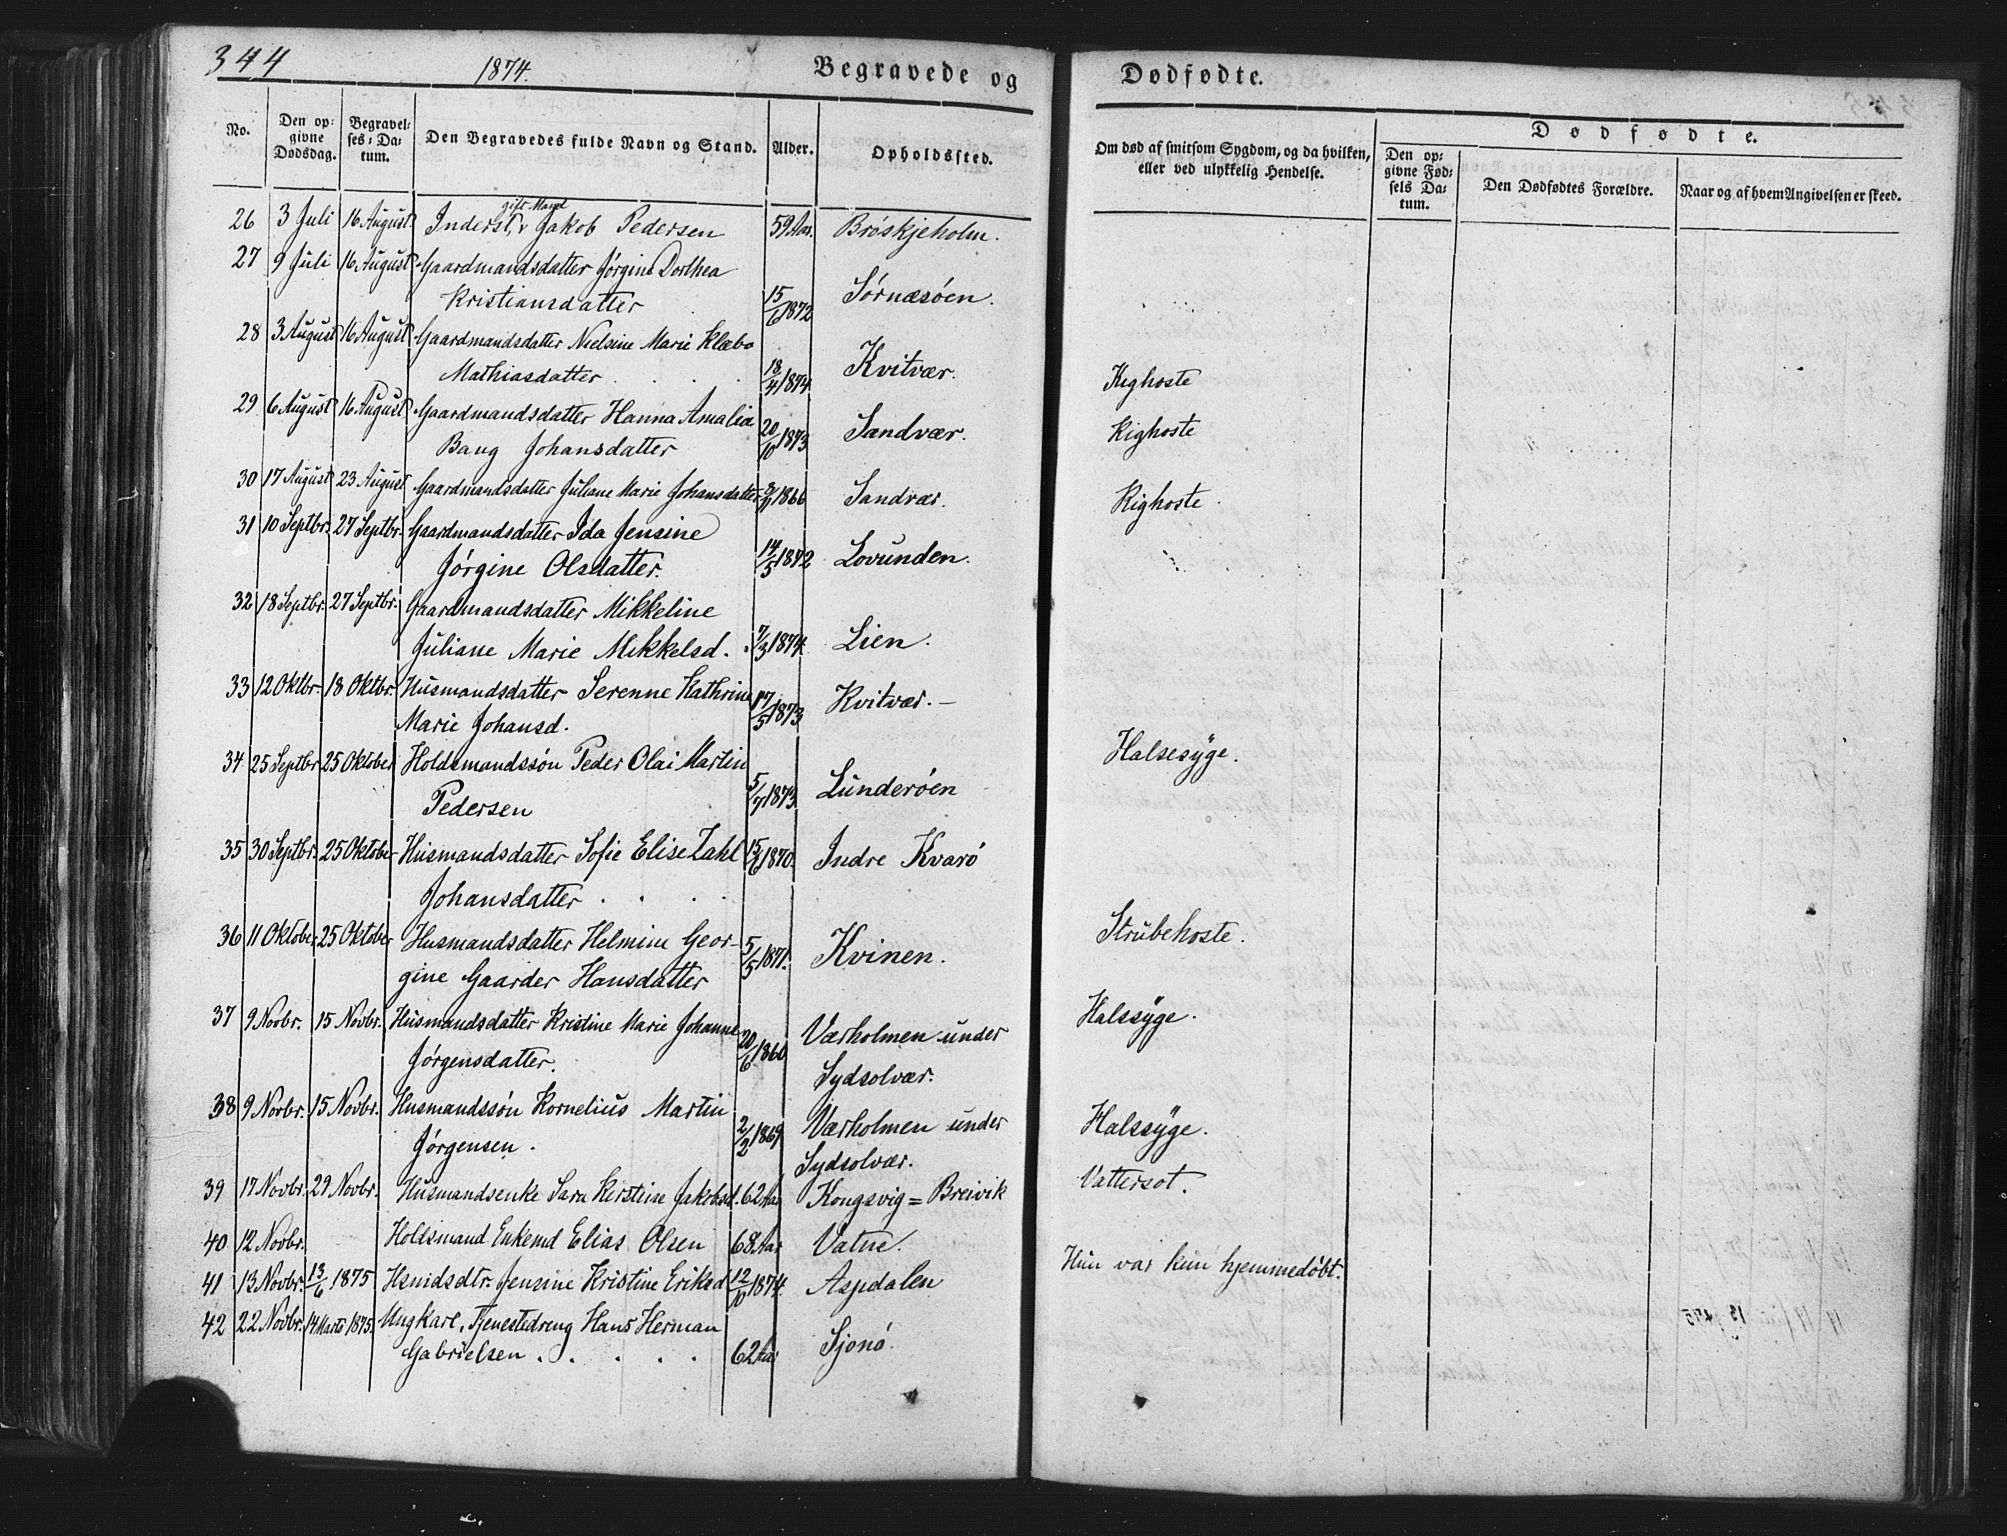 344
1874.
Begravede og
Dødfødte.
No.
Den op-
givne
Dødsdag.
Begravel-
ses-Da-
tum.
Den Begravedes fulde Navn og Stand.
Alder.
Opholdssted.
Om død af smitsom Sygdom, og da hvilken,
eller ved ulykkelig Hendelse.
Dødfødte.
Den op-
givne Fød-
sels Da-
tum.
Den Dødfødtes Forældre.
Naar og af hvem Angivelsen er skeed.
gift Mand
26 3 Juli 16 August Inderst, Jakob Pedersen 59 Aar. Brøskjeholm.
27 9 Juli 16 August Gaardmandsdatter Jørgine Dorthea
Kristiansdatter 15/6 1872 Sørnæsøen.
28 3 August 16 August Gaardmandsdatter Nielsine Marie Klæbo
Mathiasdatter 18/4 1874. Kvitvær. Kighoste
29 6 August 16 August Gaardmandsdatter Hanna Amalia
Bang Johansdatter 20/10 1873 Sandvær. Kighoste
30 17 August 23 August Gaardmandsdatter Juliane Marie Johansdatter 1866 Sandvær. Kighoste
31 10 Septbr. 27 Septbr. Gaardmandsdatter Ida Jensine
Jørgine Olsdatter. 14/5 1872 Lovunden.
32 18 Septbr. 27 Septbr. Gaardmandsdatter Mikkeline
Juliane Marie Mikkelsd. 7/3 1874. Lien.
33 12 Oktbr. 18 Oktbr. Husmandsdatter Serenne Kathrine
Marie Johansd. 17/5 1873 Kvitvær. -
34 25 Septbr 25 Oktober Holdsmandssøn Peder Olai Martin Halsesyge.
Pedersen 5/7 1873. Lunderøen
35 30 Septbr. 25 Oktober Husmandsdatter Sofie Elise Zahl 15/6 1870. Indre Kvarø
Johansdatter
36 11 Oktober 25 Oktober Husmandsdatter Helmine Geor- Strubehoste.
gine Gaarder Hansdatter 5/5 1871. Kvinen.
37 9 Novbr. 15 Novbr. Husmandsdatter Kristine Marie Johanne Halssyge.
Jørgensdatter. 20/6 1860 Værholmen under
Sydsolvær.
38 9 Novbr. 15 Novbr. Husmandssøn Kornelius Martin
Jørgensen. 2/2 1869 Værholmen under Halssyge.
Sydsolvær.
39 17 Novbr. 29 Novbr. Husmandsenke Sara Kirstine Jakobsd. 62 Aar Kongsvig = Breivik Vattersot.
40 12 Novbr. Holdsmand Enkemd Elias Olsen 68 Aar Vatne.
41 13 Novbr. 13/6 1875 Hsmdsdtr. Jensine Kristine Eriksd 12/10 1874. Aspdalen Hun var kun hjemmedøbt.
42 22 Novbr. 14 Marts 1875. Ungkarl, Tjenestedreng Hans Herman
Gabrielsen 62 Aar Sjonø.